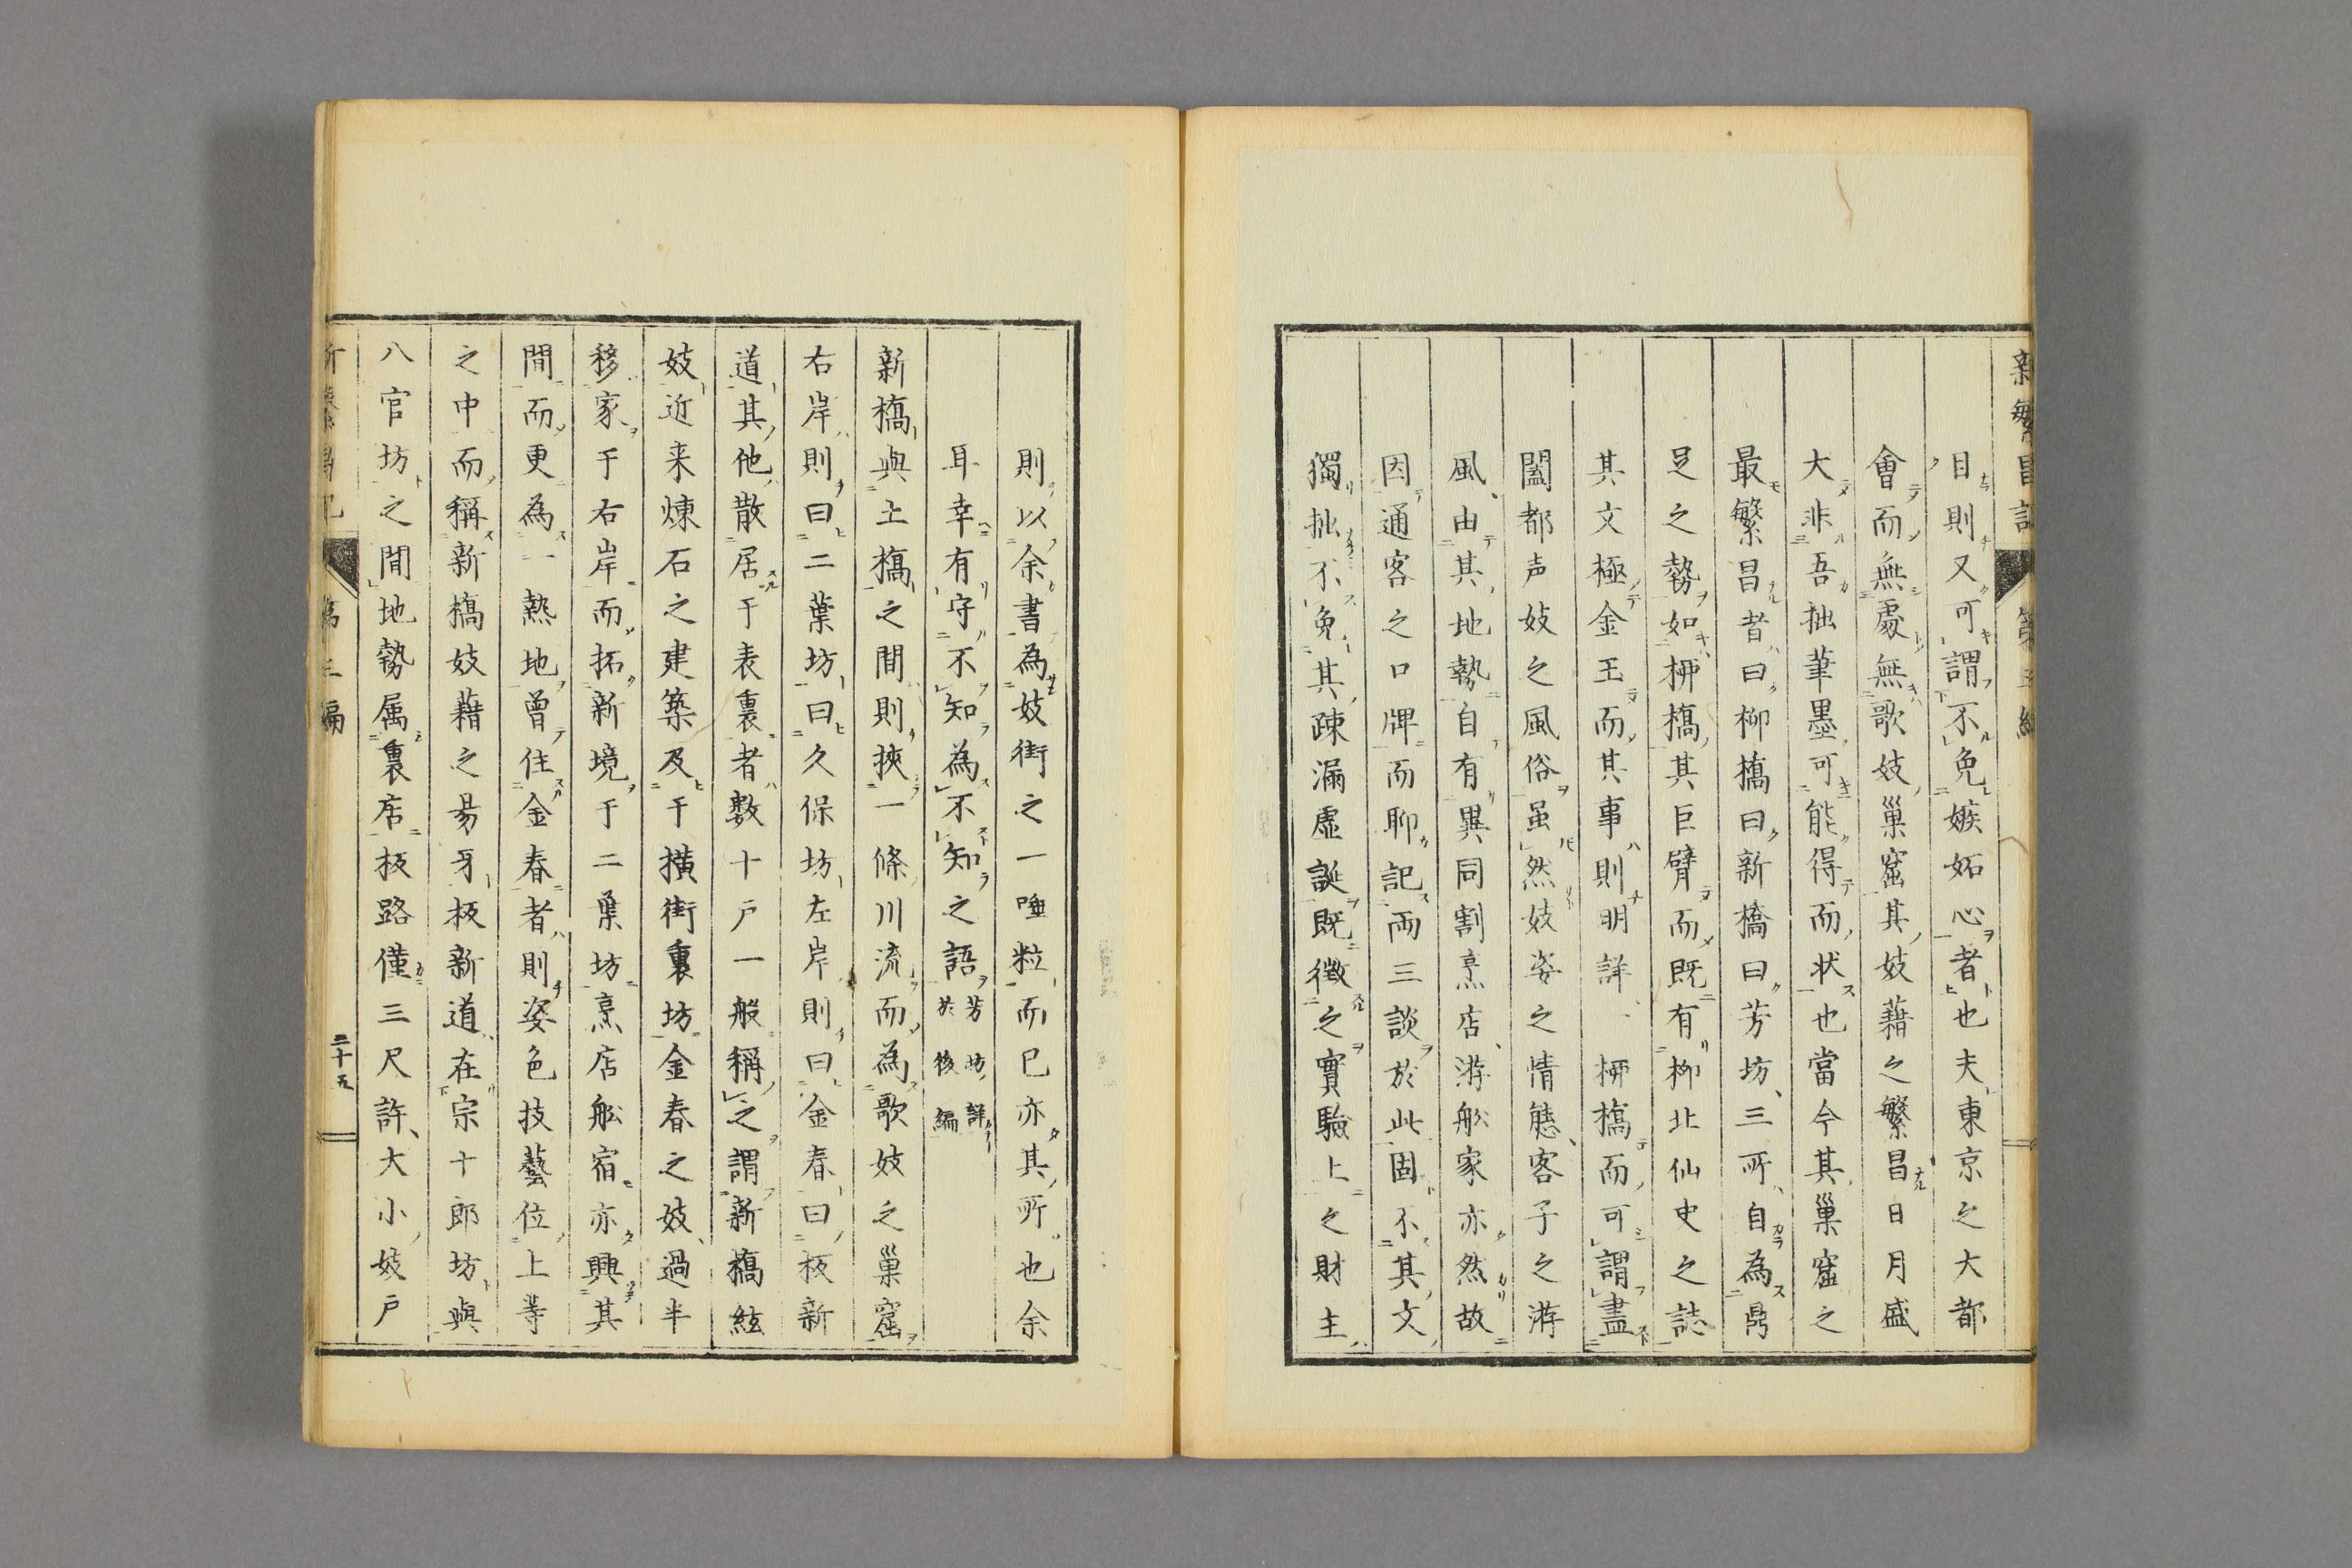 新繁昌記
目則又可謂不免嫉妬心者也夫東京之大都
會而無處無歌妓巢窟其妓藉之繁昌日月盛
大非吾拙筆墨可能得而状也當今其巢窟之
最繁昌者曰柳橋曰新橋曰芳坊三所自為鼎
足之勢如柳橋其巨臂而既有柳北仙史之誌
其文極金玉而其事則明詳柳橋而可謂盡
闔都声妓之風俗虽然妓姿之情態客子之游
風由其地勢自有異同割烹店游舩家亦然故
因通客之口牌而聊記両三談於此固不其文
獨拙不免其疎漏虛誕既徴之實驗上之財主
則以余書為妓街之一唾粒而已亦其所也余
耳幸有守不知為不知之語芳坊詳於後編
新橋與土橋之間則挾一條川流而為歌妓之巢窟
右岸則曰二葉坊曰久保坊左岸則曰金春曰板新
道其他散居于表裏者數十戸一般稱之謂新橋絃
妓近来煉石之建築及于横街裏坊金春之妓過半
移家于右岸而拓新境于二葉坊烹店舩宿亦興其
間而更為一熱地曾住金春者則姿色技藝位上等
之中而稱新橋妓藉之昜牙板新道在宗十郎坊與
八官坊之間地勢属裏店板路僅三尺許大小妓戸
二十五